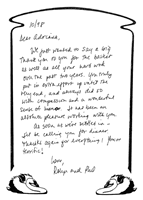 10/98
Dear Adrienne,
We just wanted to say a big
Thank you to you for the
as well as all your hard work
over the past two years. You truly
put in extra effort
and always did so
with compassion and a wonderful
sense of humor. It has been an
absolute pleasure working with you.
As soon as we're settled in -
I'll be calling you for dinner
Thanks again for everything!
terrific!
Love,
Robyn and Phil